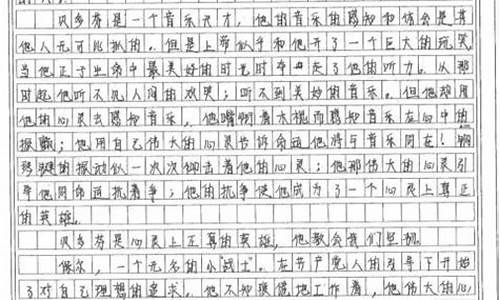 贝多芬是一个音乐天才，他的音乐的感知和体会是其
他人无可比拟的。但是上帝似乎和他开了一个巨大的玩笑
当他正于生命中最美好的时光时夺走了他的听力。从那
时起他听不见人间的欢笑；听不到美妙的音乐。但他却用
他的心灵去感知音乐，他嘴咬着木棍而感知音乐在心中的
振颤；他用自己伟大的心灵告诉命运他将与音乐同在！钢
琴键的振动似一次次叩击着他的心灵；他那伟大的心灵引
导他同命运抗着争；他的抗争使他成为了一个心灵上真正
的英雄。
贝多芬是心灵上正真的英雄，他教会我们坚韧。
保尔，一个无名的小"战士"。在共产党人的引导下开始
了对自己理想的追求。他不知疲倦地工作着，他伟大的心